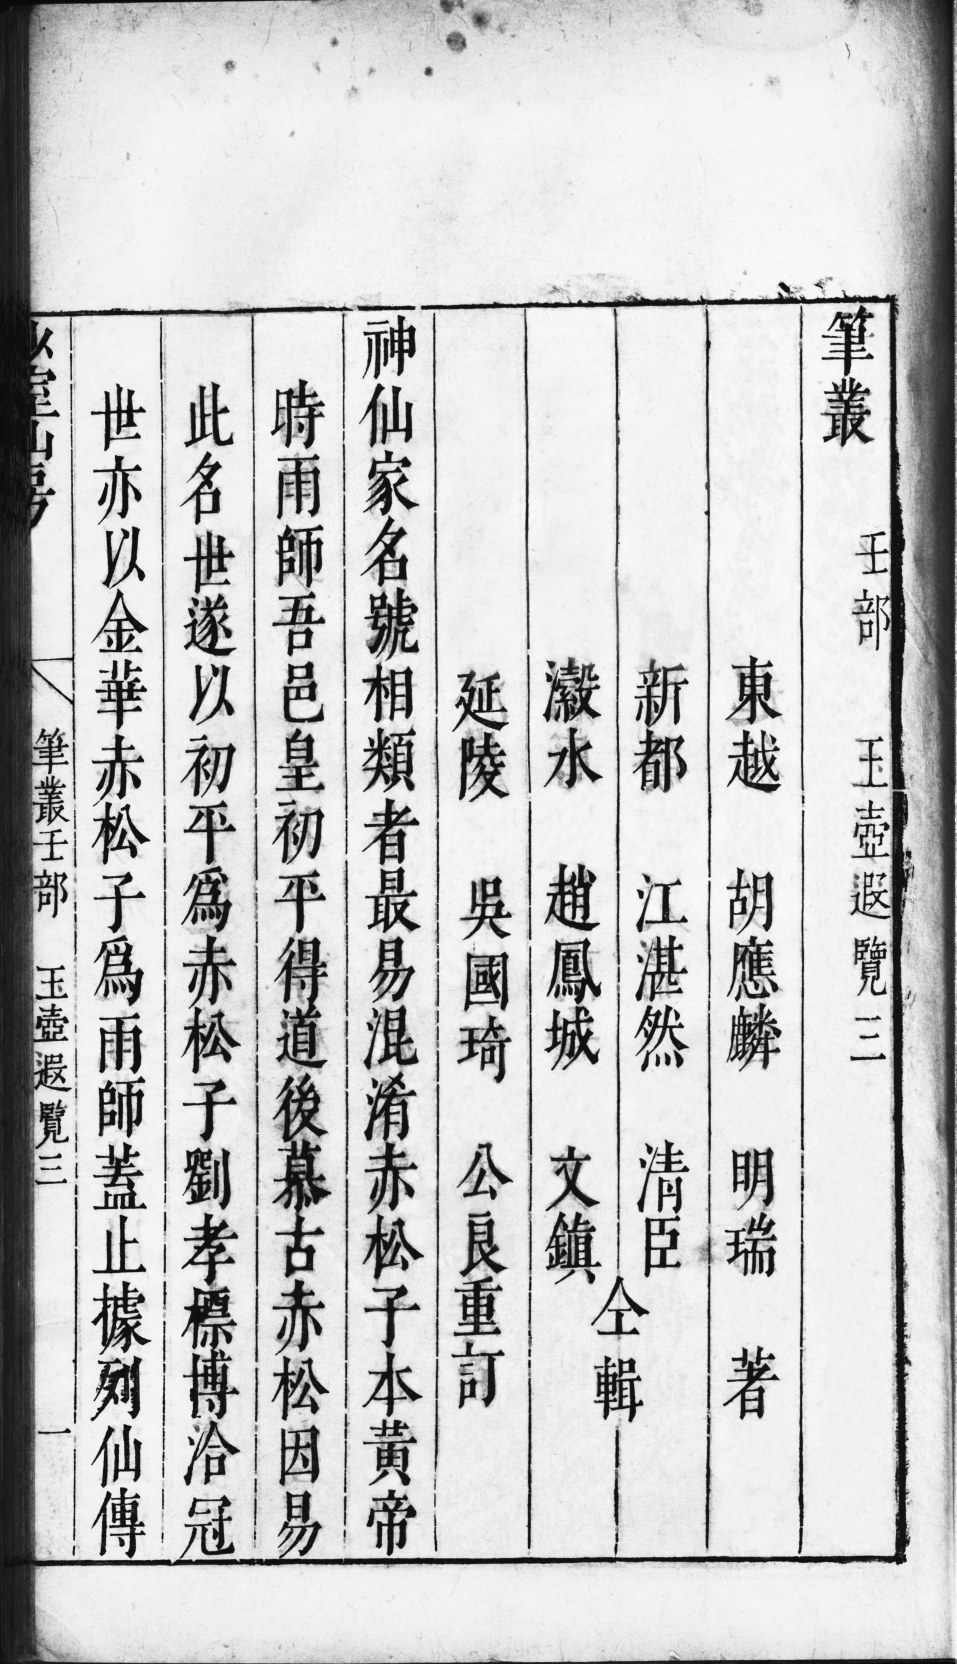 筆叢　壬部　玉壺遐覽三
東越　胡應麟　明瑞　著
新都　江湛然　清臣
瀫水　趙鳳城　文鎮
仝輯
延陵　吳國琦　公良重訂
神仙家名號相類者最易混淆赤松子本黃帝
時雨師吾邑皇初平得道後慕古赤松因易
此名世遂以初平爲赤松子劉孝標博洽冠
世亦以金華赤松子爲雨師蓋止據列仙傳
少室山房　筆叢壬部　玉壺遐覽三　一